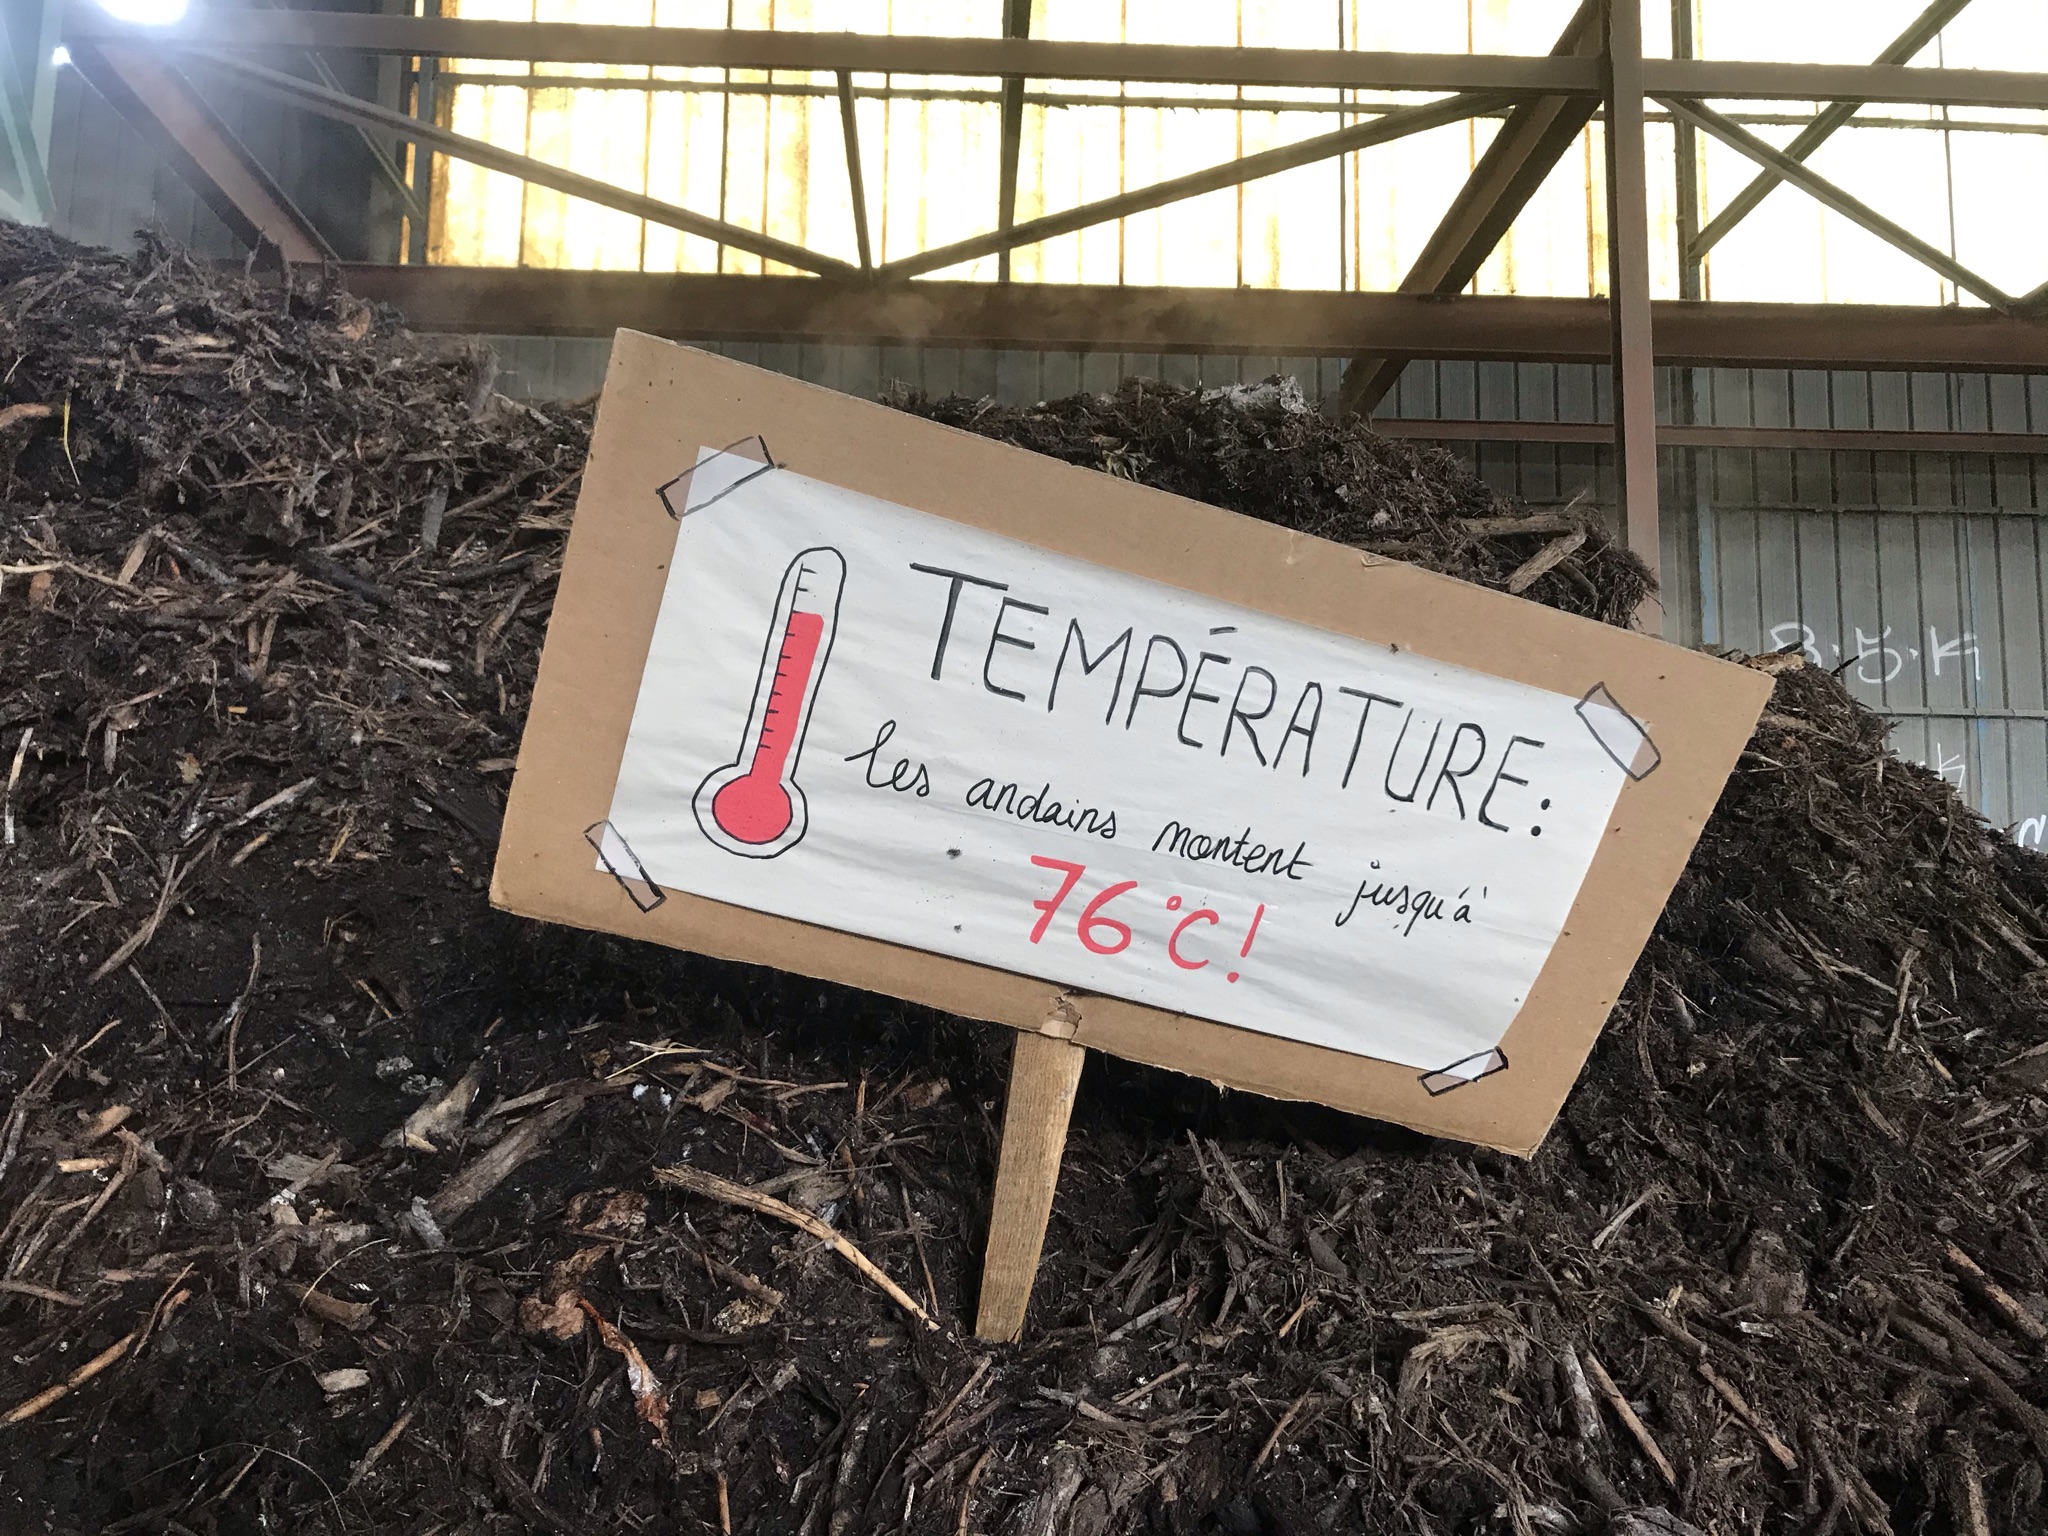 TEMPÉRATURE:
les andains montent jusqu'à
76°C!